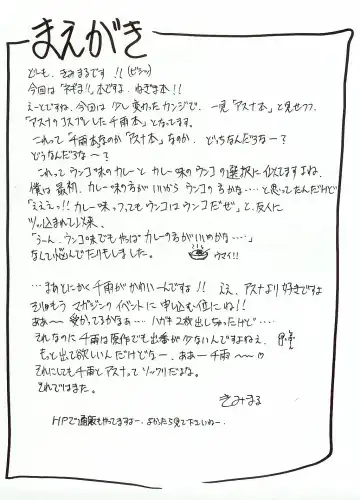 まえがき
どーも、きみまるです!!(ビシッ)
今回は「ネギま!!」本ですよ、ねぎま本!!
えーとですね、今回は少し変わったカンジで、一見「アスナ本」と見せつつ、
「アスナのコスプレした千雨本」となってます。
これって「千雨本」なのか「アスナ本」なのか、どっちなんだろなー?
どうなんだろな〜?
これってウンコ味のカレーとカレー味のウンコの選択に似てますよね、
僕は最初、カレー味の方がいいからウンコのるかな……と思ってたんだけど
「えええっ!!カレー味っつってもウンコはウンコだぜ」と、友人に
ツッ込まれて以来、
「うーん、ウンコ味でもやっぱカレーの方がいいのかな…」
なんて悩んでたりもしました。 ウマイ!!
…まぁとにかく千雨がかわいーんですよ!!ええ、アスナより好きですよ
マガジンのイベントに申し込む位にね!!
ああ〜受かってるかなぁ…ハガキ2枚出しちゃったけど……
それなのに千雨は原作でも出番が少ないんですよねえ、
もっと出て欲しいんだけどなー、ああー千雨〜
それにしても千雨とアスナってソックリだよな。
それではまた。
きみまる
HPで通販もやってますよー、よかったら見て下さいねー。